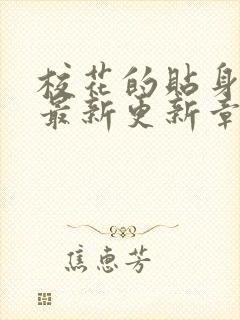 校花的贴身
最新更新章
焦惠芳